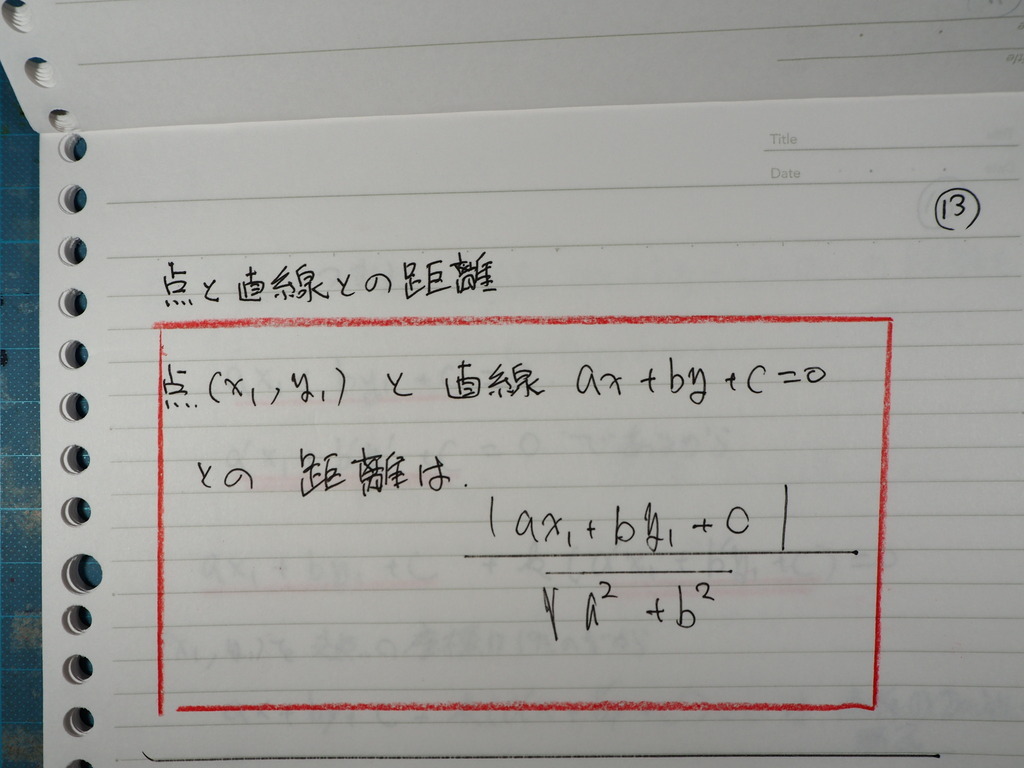 Title
Date
⑬
点と直線との距離
点(x₁, y₁) と 直線 ax+by+c=0
との 距離は.
|ax₁+by₁+0|
√a²+b²